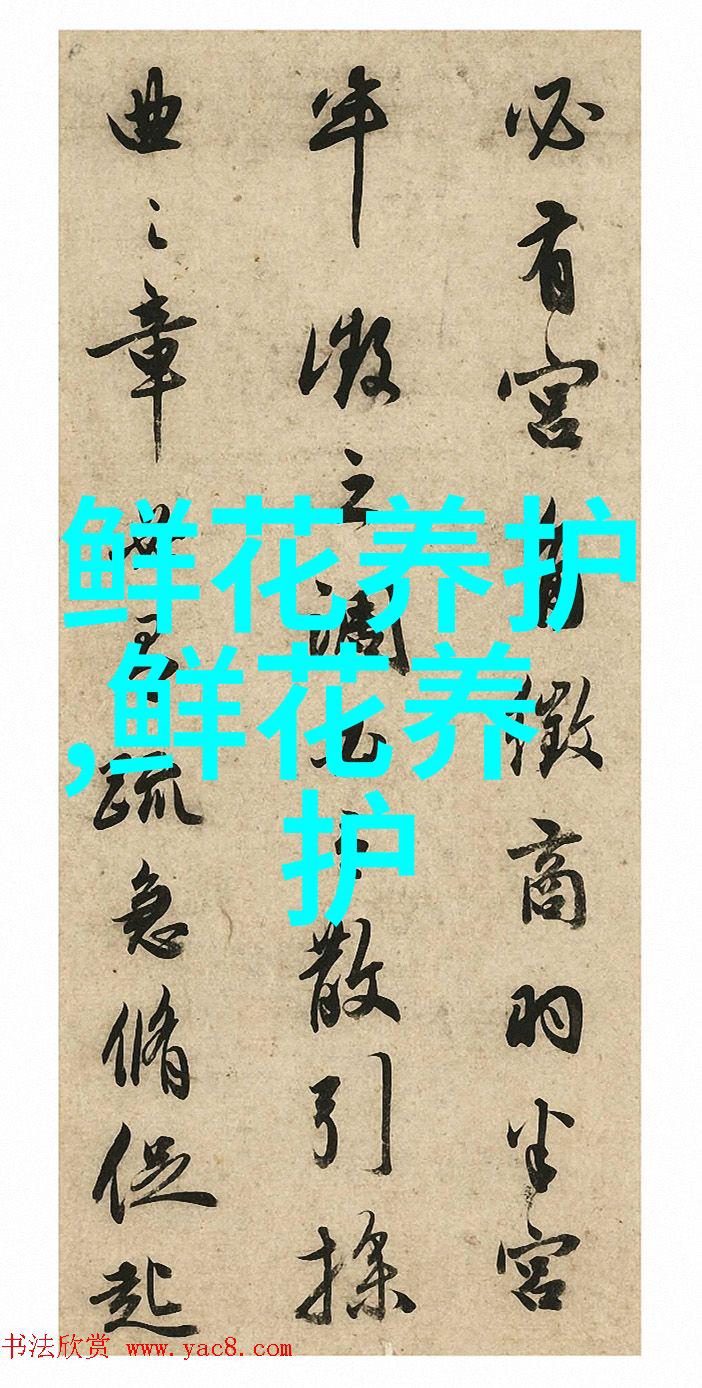 必有宫角徵商羽半宫
半徵之調散引操
曲之章疏急脩促起
鲜花养护
,鲜花养
护
书法欣赏 www.yac8.com